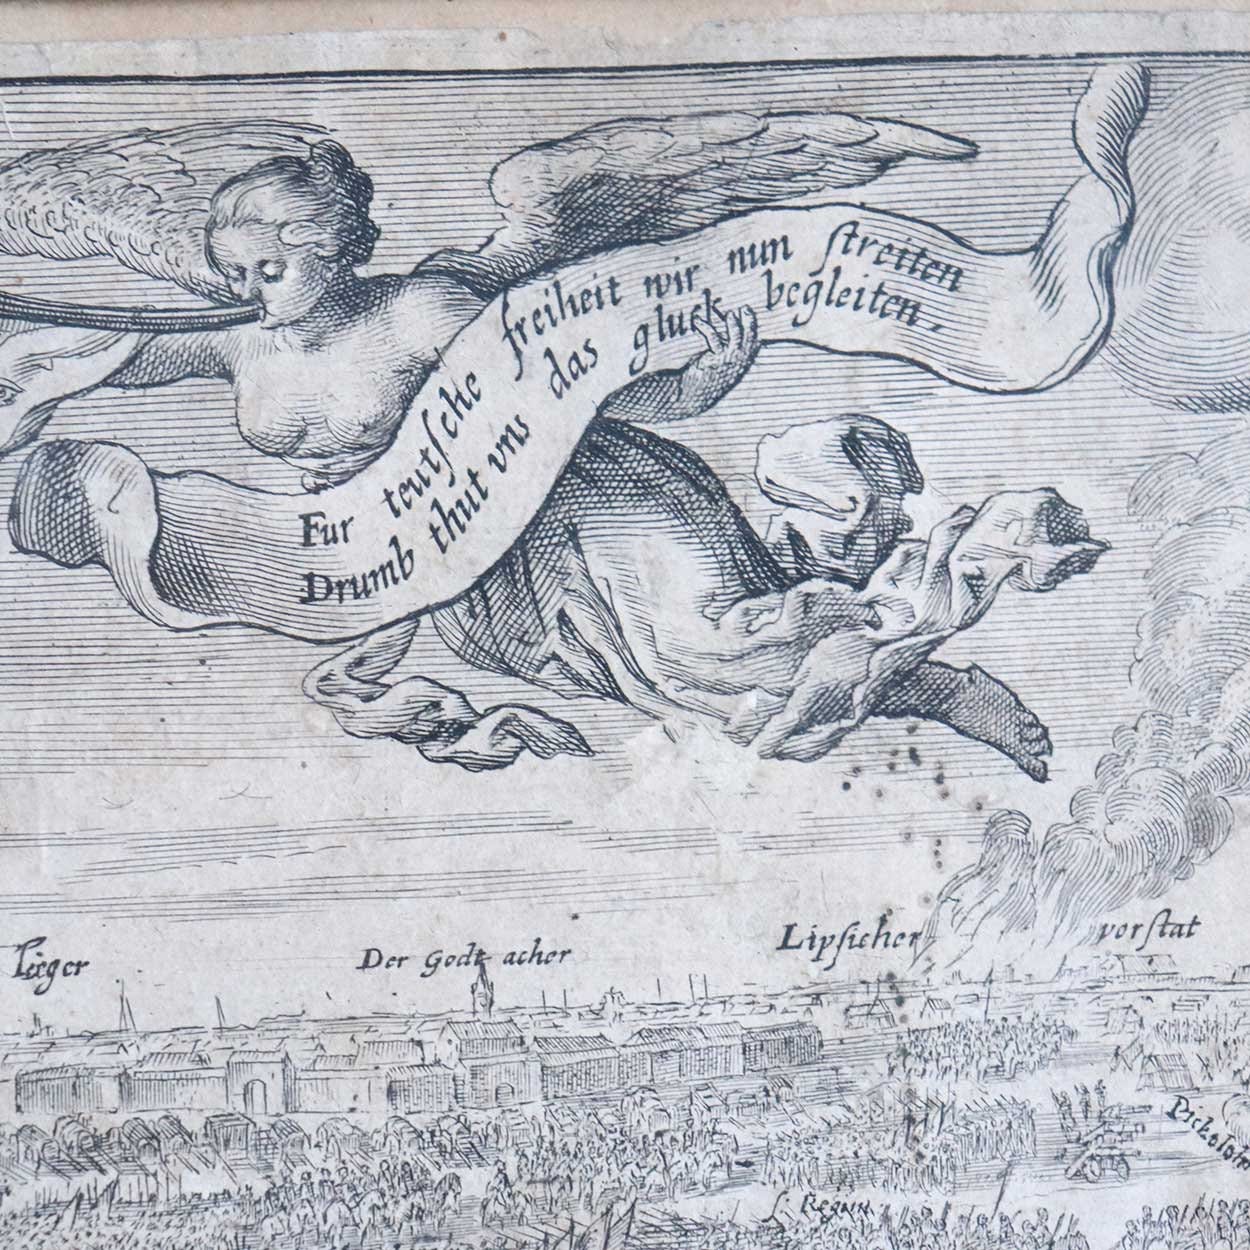 Fur teutsche freiheit wir nun streiten
Drumb thut vns das gluck begleiten.
Der Godt acher
Lipsicher vorstat